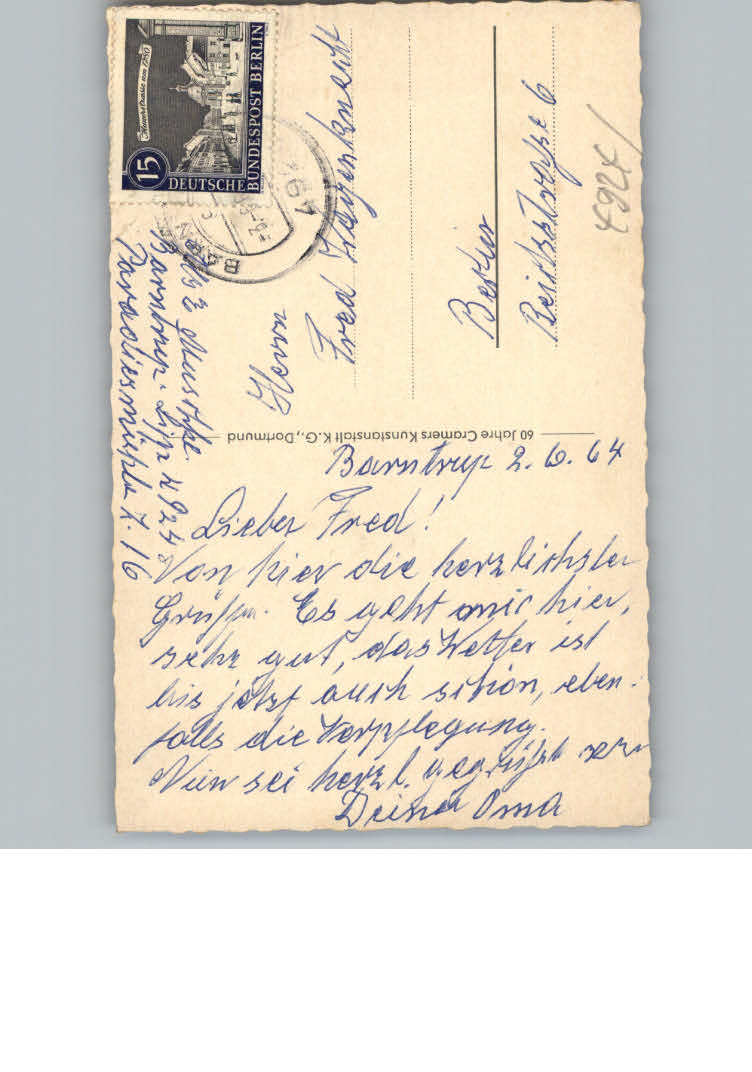 Barntrup 2.6.64
Lieber Fred!
Von hier die herzlichsten
Grüße. Es geht mir hier,
sehr gut, das Wetter ist
bis jetzt auch schön, eben-
falls die Verpflegung.
Nun sei herzl. gegrüßt von
Deiner Oma
Herrn
Fred
Berlin
Reichsstraße 6
Barntrup. Lipp 4924
Paradiesmühle 7. 16
4924
60 Jahre Cramers Kunstanstalt K.G., Dortmund
15
DEUTSCHE
BUNDESPOST BERLIN
Mauerstrasse um 1780